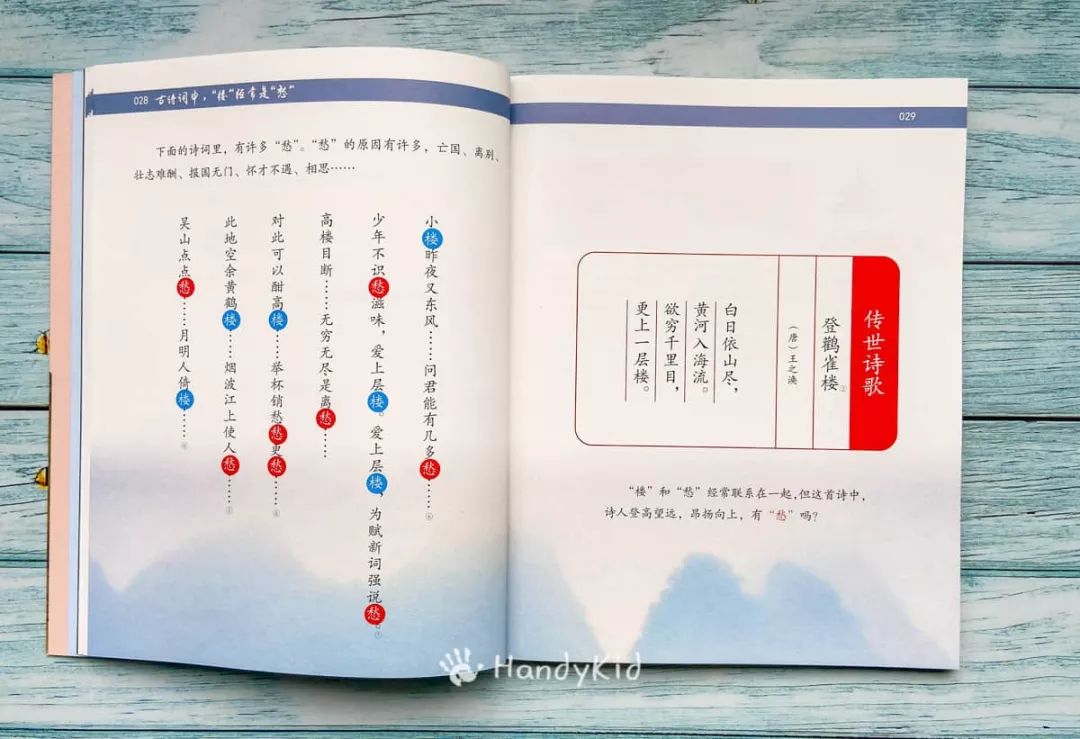 028 古诗词中，“楼”经常是“愁”
下面的诗词里，有许多“愁”。“愁”的原因有许多，亡国、离别、
壮志难酬、报国无门、怀才不遇、相思……
小楼昨夜又东风……问君能有几多愁……
少年不识愁滋味，爱上层楼。爱上层楼，为赋新词强说愁。
高楼目断……无穷无尽是离愁……
对此可以酣高楼……举杯销愁愁更愁……
此地空余黄鹤楼……烟波江上使人愁……
吴山点点愁……月明人倚楼……
029
传世诗歌
登鹳雀楼
（唐）王之涣
白日依山尽，
黄河入海流。
欲穷千里目，
更上一层楼。
“楼”和“愁”经常联系在一起，但这首诗中，
诗人登高望远，昂扬向上，有“愁”吗？
HandyKid